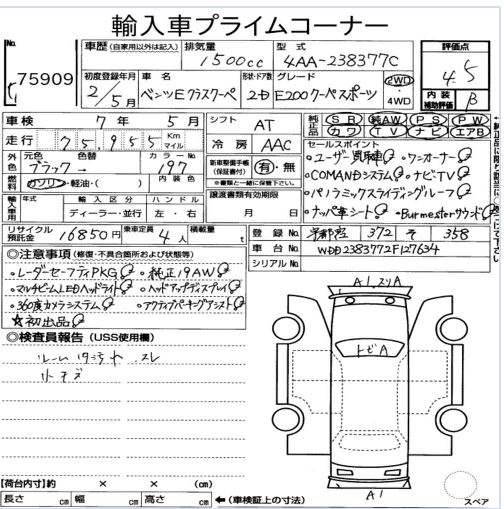 輸入車プライムコーナー
No.
75909
車歴 (自家用以外は記入)
排気量
1500cc
型式
4AA-238377C
評価点
4.5
初度登録年月
2年5月
車名
ベンツEクラスクーペ
形状・ドア数
2D
グレード
E200クーペスポーツ
2WD
4WD
内装補助評価
B
車検 7年 5月
シフト
AT
純正品
SR 純AW PS PW
カワ TV ナビ エアB
走行 25,955 Km マイル
冷房
AAC
セールスポイント
外色
元色 色替
ブラック
カラーNo.
197
新車整備手帳(保証書付)
有・無
※書類と一緒に保管下さい。
・ユーザー買取 ・ワンオーナー
・COMANDシステム ・ナビTV
・パノラミックスライディングルーフ
・ナッパ革シート ・Burmesterサウンド
燃料
ガソリン・軽油・( )
内装色
輸入車用
年式
輸入区分
ディーラー・並行
ハンドル
左・右
譲渡書類有効期限
月 日
リサイクル預託金
16850円
乗車定員
4人
積載量
t
登録No.
京都 372 そ 358
車台No.
WDD2383772F127634
シリアルNo.
◎注意事項 (修復・不具合箇所および状態等)
・レーダーセーフティPKG ・純正19AW
・マルチビームLEDヘッドライト ・ヘッドアップディスプレイ
・360度カメラシステム ・アクティブパーキングアシスト
☆初出品
◎検査員報告 (USS使用欄)
ルーム内汚れ スレ
小キズ
A1,スリA
トビA
A1
スペア
【荷台内寸】約 × × (cm)
長さ cm 幅 cm 高さ cm ←(車検証上の寸法)